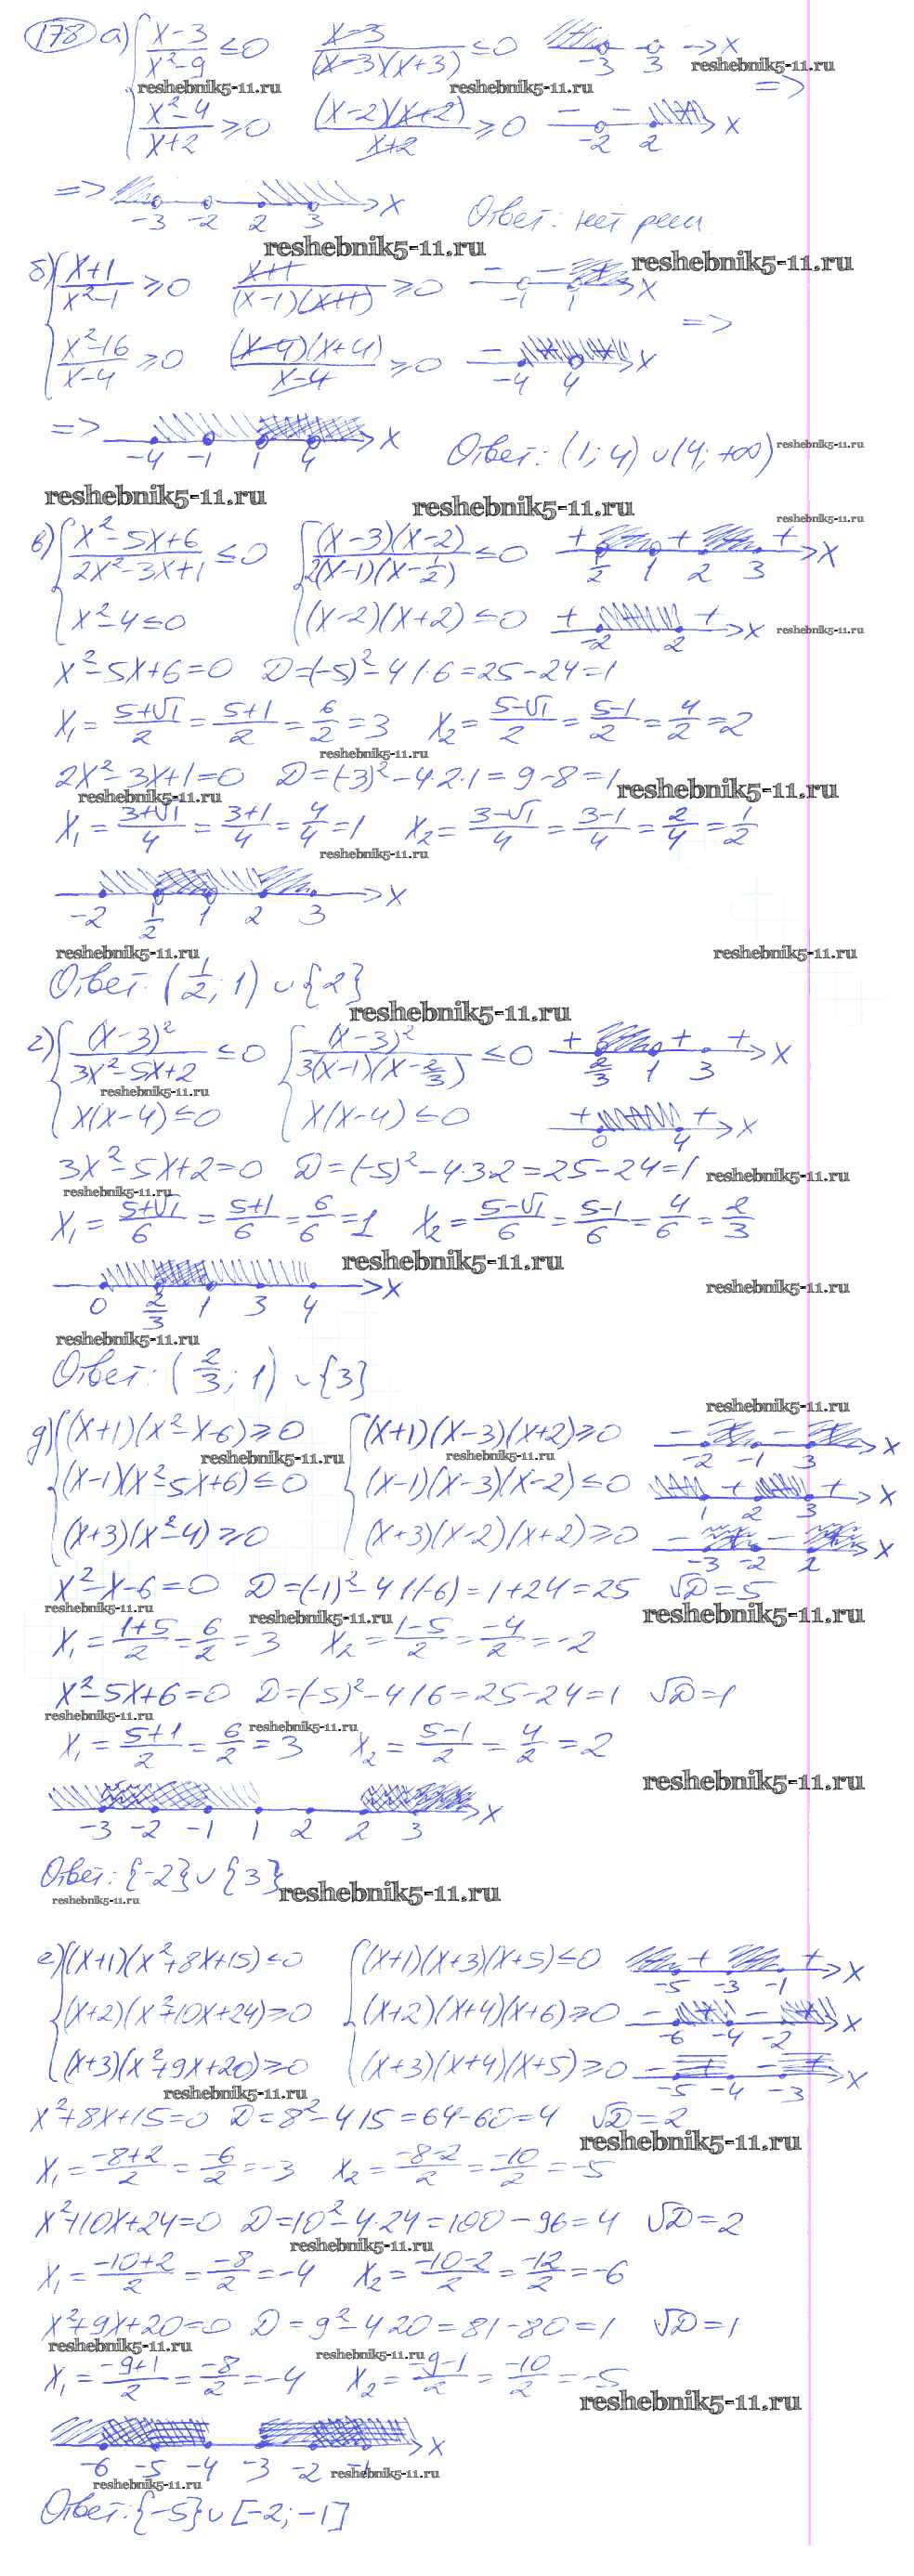 178 а) { (x-3)/(x²-9) ≤0   (x-3)/((x-3)(x+3)) ≤0   -3 3 x
reshebnik5-11.ru
reshebnik5-11.ru reshebnik5-11.ru =>
(x²-4)/(x+2) ≥0   ((x-2)(x+2))/(x+2) ≥0   - - -2 2 x
=> -3 -2 2 3 x   Ответ: нет реш.
reshebnik5-11.ru reshebnik5-11.ru
б) { (x+1)/(x²-1) ≥0   (x+1)/((x-1)(x+1)) ≥0   - - + -1 1 x
=>
(x²-16)/(x-4) ≥0   ((x-4)(x+4))/(x-4) ≥0   - + + -4 4 x
=> -4 -1 1 4 x   Ответ: (1; 4) ∪ (4; +∞)
reshebnik5-11.ru
reshebnik5-11.ru reshebnik5-11.ru
reshebnik5-11.ru
в) { (x²-5x+6)/(2x²-3x+1) ≤0   { ((x-3)(x-2))/(2(x-1)(x-1/2)) ≤0   + + + 1/2 1 2 3 x
x²-4≤0   (x-2)(x+2)≤0   + + -2 2 x
reshebnik5-11.ru
x²-5x+6=0 D=(-5)²-4·1·6=25-24=1
x₁=(5+√1)/2=(5+1)/2=6/2=3   x₂=(5-√1)/2=(5-1)/2=4/2=2
reshebnik5-11.ru
2x²-3x+1=0 D=(-3)²-4·2·1=9-8=1
reshebnik5-11.ru reshebnik5-11.ru
x₁=(3+√1)/4=(3+1)/4=4/4=1   x₂=(3-√1)/4=(3-1)/4=2/4=1/2
reshebnik5-11.ru
-2 1/2 1 2 3 x
reshebnik5-11.ru reshebnik5-11.ru
Ответ: (1/2; 1) ∪ {2}
reshebnik5-11.ru
г) { (x-3)²/(3x²-5x+2) ≤0   { (x-3)²/(3(x-1)(x-2/3)) ≤0   + + + 2/3 1 3 x
reshebnik5-11.ru
x(x-4)≤0   x(x-4)≤0   + + 0 4 x
3x²-5x+2=0 D=(-5)²-4·3·2=25-24=1
reshebnik5-11.ru
reshebnik5-11.ru
x₁=(5+√1)/6=(5+1)/6=6/6=1   x₂=(5-√1)/6=(5-1)/6=4/6=2/3
reshebnik5-11.ru
0 2/3 1 3 4 x
reshebnik5-11.ru
reshebnik5-11.ru
Ответ: (2/3; 1) ∪ {3}
reshebnik5-11.ru
д) { (x+1)(x²-x-6)≥0   { (x+1)(x-3)(x+2)≥0   - + - + -2 -1 3 x
reshebnik5-11.ru reshebnik5-11.ru
(x-1)(x²-5x+6)≤0   (x-1)(x-3)(x-2)≤0   + + 1 2 3 x
(x+3)(x²-4)≥0   (x+3)(x-2)(x+2)≥0   - - -3 -2 2 x
x²-x-6=0 D=(-1)²-4·1·(-6)=1+24=25 √D=5
reshebnik5-11.ru reshebnik5-11.ru reshebnik5-11.ru
x₁=(1+5)/2=6/2=3   x₂=(1-5)/2=-4/2=-2
x²-5x+6=0 D=(-5)²-4·1·6=25-24=1 √D=1
reshebnik5-11.ru reshebnik5-11.ru
x₁=(5+1)/2=6/2=3   x₂=(5-1)/2=4/2=2
reshebnik5-11.ru
-3 -2 -1 1 2 2 3 x
Ответ: {-2} ∪ {3}
reshebnik5-11.ru reshebnik5-11.ru
е) { (x+1)(x²+8x+15)≤0   { (x+1)(x+3)(x+5)≤0   + + -5 -3 -1 x
(x+2)(x²+10x+24)≥0   (x+2)(x+4)(x+6)≥0   - + - -6 -4 -2 x
(x+3)(x²+9x+20)≥0   (x+3)(x+4)(x+5)≥0   - + - + -5 -4 -3 x
reshebnik5-11.ru
x²+8x+15=0 D=8²-4·15=64-60=4 √D=2
reshebnik5-11.ru
x₁=(-8+2)/2=-6/2=-3   x₂=(-8-2)/2=-10/2=-5
x²+10x+24=0 D=10²-4·24=100-96=4 √D=2
reshebnik5-11.ru
x₁=(-10+2)/2=-8/2=-4   x₂=(-10-2)/2=-12/2=-6
x²+9x+20=0 D=9²-4·20=81-80=1 √D=1
reshebnik5-11.ru reshebnik5-11.ru
x₁=(-9+1)/2=-8/2=-4   x₂=(-9-1)/2=-10/2=-5
reshebnik5-11.ru
-6 -5 -4 -3 -2 -1 x
reshebnik5-11.ru
reshebnik5-11.ru
Ответ: {-5} ∪ [-2; -1]